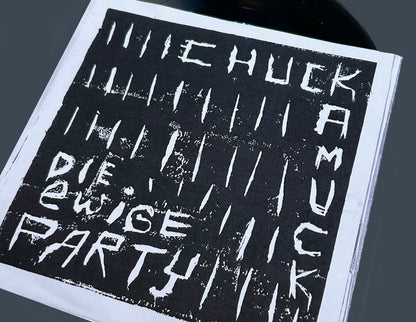 CHUCK
AMUCK
DIE
eWIGE
PARTY